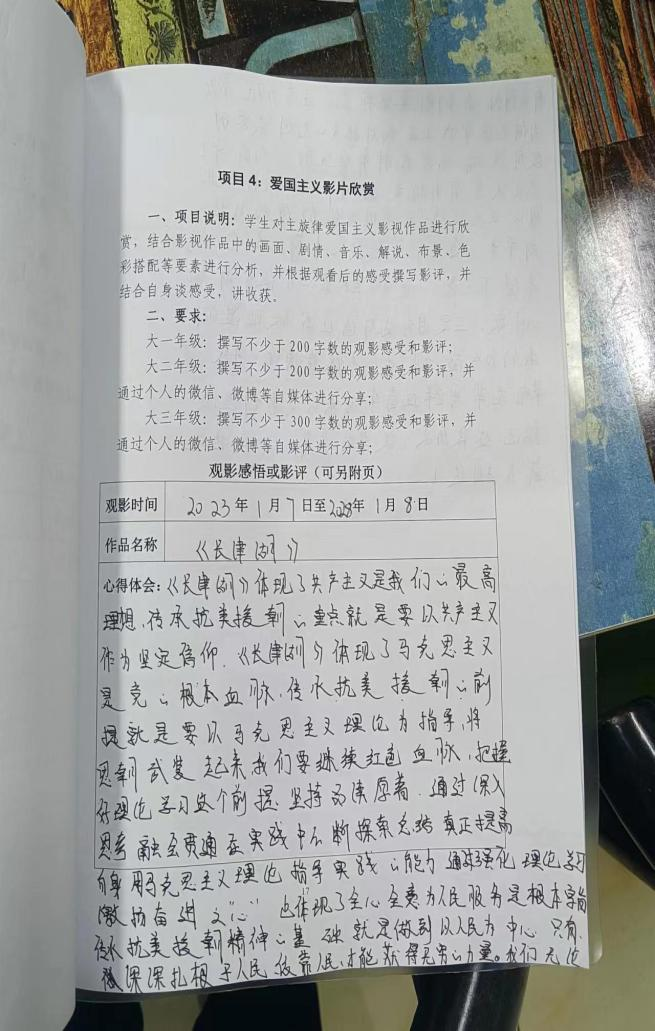 项目 4：爱国主义影片欣赏
一、项目说明：学生对主旋律爱国主义影视作品进行欣
赏，结合影视作品中的画面、剧情、音乐、解说、布景、色
彩搭配等要素进行分析，并根据观看后的感受撰写影评，并
结合自身谈感受，讲收获。
二、要求：
大一年级：撰写不少于 200 字数的观影感受和影评；
大二年级：撰写不少于 200 字数的观影感受和影评，并
通过个人的微信、微博等自媒体进行分享；
大三年级：撰写不少于 300 字数的观影感受和影评，并
通过个人的微信、微博等自媒体进行分享；
观影感悟或影评（可另附页）
观影时间 2023年1月7日至2023年1月8日
作品名称 《长津湖》
心得体会：《长津湖》体现了共产主义是我们的最高
理想，传承抗美援朝的重点就是要以共产主义
作为坚定信仰．《长津湖》体现了马克思主义
是党的根本血脉，传承抗美援朝的前
提就是要以马克思主义理论为指导，将
思想武装起来我们要继续红色血脉，把握
好理论学习这个前提．坚持多读原著．通过深入
思考融会贯通在实践中不断探索总结真正提高
自身用马克思主义理论指导实践的能力通过强化理论学习
激扬奋进之"心" 也体现了全心全意为人民服务是根本宗旨
传承抗美援朝精神的基础就是做到以人民为中心 只有
深深扎根于人民依靠人民，才能获得无穷的力量。我们无论